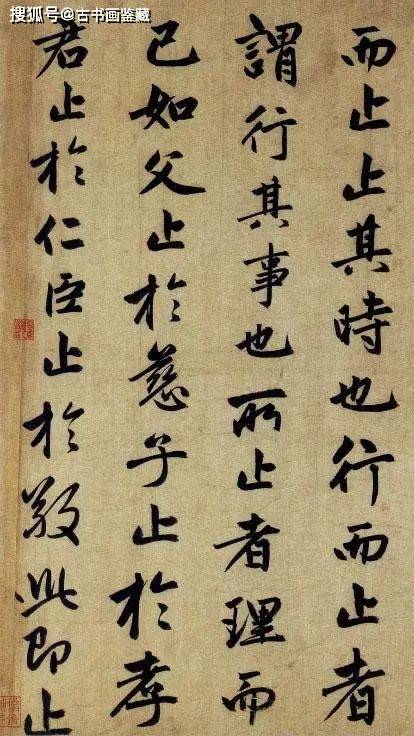 搜狐号@古书画鉴藏
而止止其時也行而止者
謂行其事也所止者理而
已如父止於慈子止於孝
君止於仁臣止於敬此即止